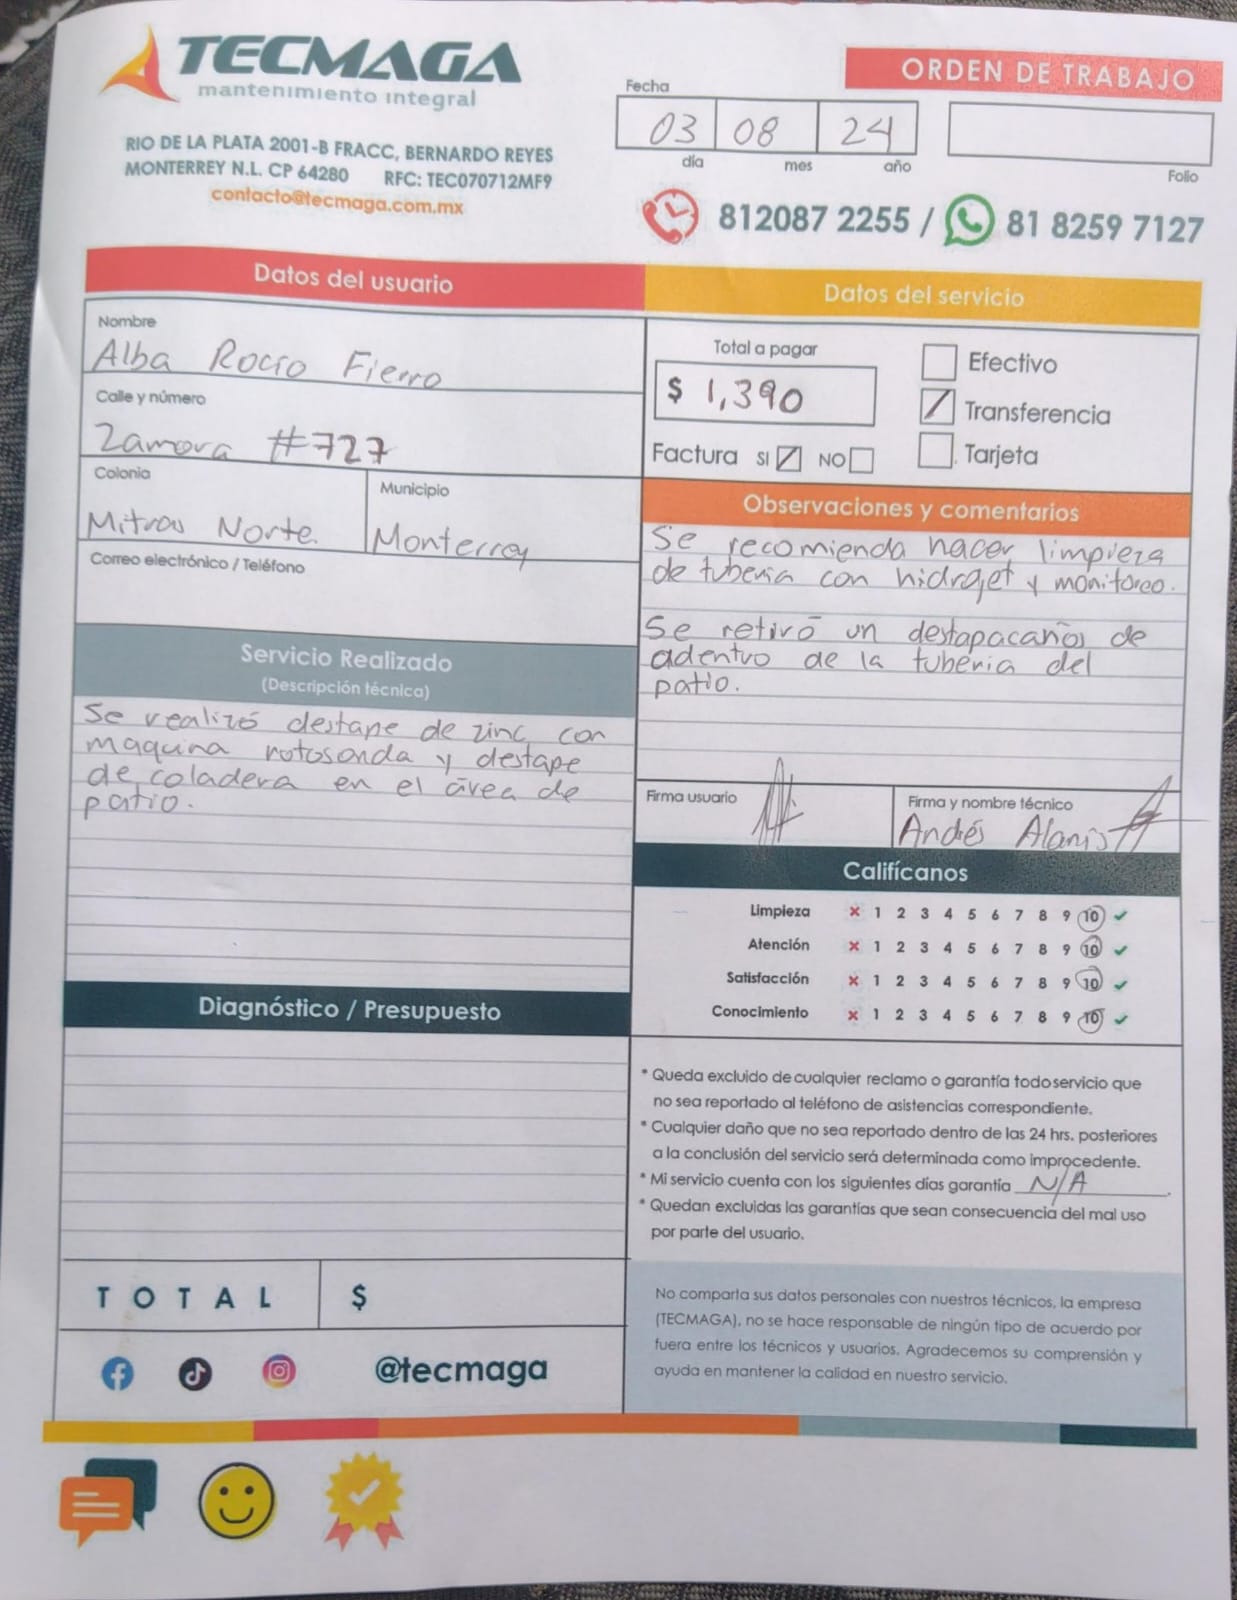 TECMAGA
mantenimiento integral
RIO DE LA PLATA 2001-B FRACC, BERNARDO REYES
MONTERREY N.L. CP 64280 RFC: TEC070712MF9
contacto@tecmaga.com.mx
ORDEN DE TRABAJO
Fecha
03 08 24
día mes año
Folio
812087 2255 / 81 8259 7127
Datos del usuario
Nombre
Alba Rocío Fierro
Calle y número
Zamora #727
Colonia
Mitras Norte.
Municipio
Monterrey
Correo electrónico / Teléfono
Servicio Realizado
(Descripción técnica)
Se realizó destape de zinc con
maquina rotosonda y destape
de coladera en el área de
patio.
Diagnóstico / Presupuesto
TOTAL $
@tecmaga
Datos del servicio
Total a pagar
$ 1,390
Efectivo
Transferencia
Tarjeta
Factura SI NO
Observaciones y comentarios
Se recomienda hacer limpieza
de tuberia con hidrojet y monitoreo.
Se retiró un destapacaños de
adentro de la tuberia del
patio.
Firma usuario
Firma y nombre técnico
Andrés Alanis
Califícanos
Limpieza × 1 2 3 4 5 6 7 8 9 10 ✓
Atención × 1 2 3 4 5 6 7 8 9 10 ✓
Satisfacción × 1 2 3 4 5 6 7 8 9 10 ✓
Conocimiento × 1 2 3 4 5 6 7 8 9 10 ✓
* Queda excluido de cualquier reclamo o garantía todo servicio que
no sea reportado al teléfono de asistencias correspondiente.
* Cualquier daño que no sea reportado dentro de las 24 hrs. posteriores
a la conclusión del servicio será determinada como improcedente.
* Mi servicio cuenta con los siguientes días garantía N/A.
* Quedan excluidas las garantías que sean consecuencia del mal uso
por parte del usuario.
No comparta sus datos personales con nuestros técnicos, la empresa
(TECMAGA), no se hace responsable de ningún tipo de acuerdo por
fuera entre los técnicos y usuarios. Agradecemos su comprensión y
ayuda en mantener la calidad en nuestro servicio.